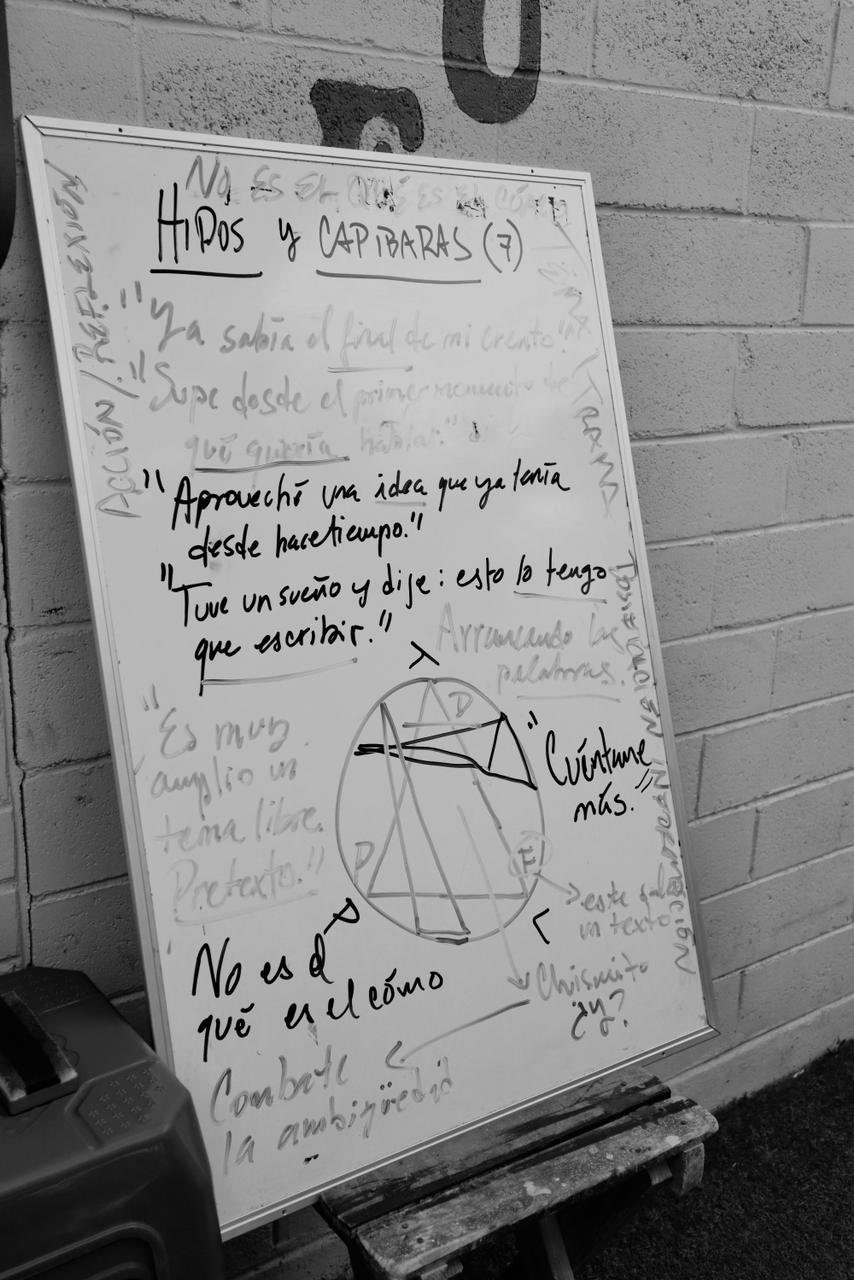 NO ES EL QUÉ ES EL CÓMO
HIDOS y CAPIBARAS (7)
ACCIÓN / REFLEXIÓN
"Ya sabía el final de mi cuento."
"Supe desde el primer momento de
qué quería hablar."
"Aproveché una idea que ya tenía
desde hace tiempo."
"Tuve un sueño y dije: esto lo tengo
que escribir."
Arrancando las
palabras.
TEMA / TRAMA
"Es muy
amplio un
tema libre.
Pretexto."
D
P
"Cuéntame
más."
este
un texto
No es el
qué es el cómo
Chismito
¿y?
Combate
la ambigüedad